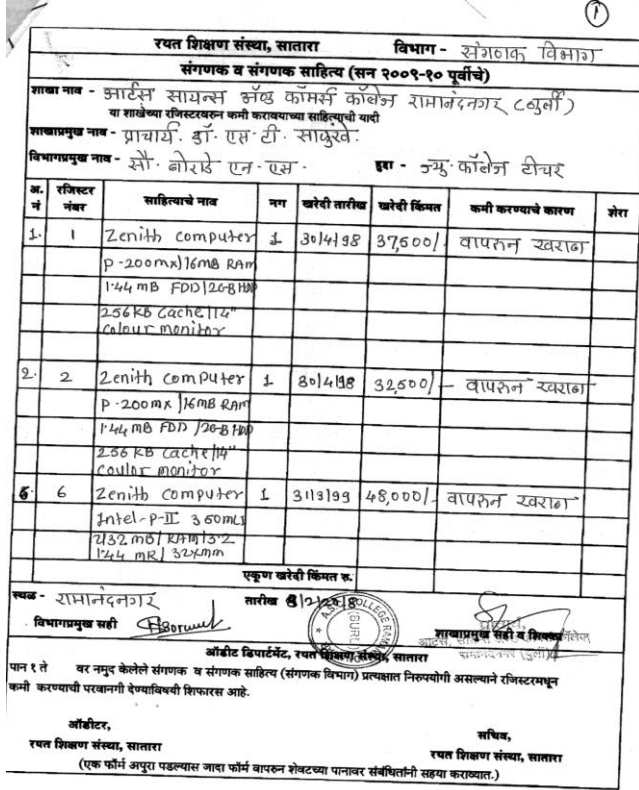 १
रयत शिक्षण संस्था, सातारा विभाग - संगणक विभाग
संगणक व संगणक साहित्य (सन २००९-१० पूर्वीचे)
शाखा नाव - आर्टस सायन्स अॅण्ड कॉमर्स कॉलेज रामानंदनगर (बुर्ली)
या शाखेच्या रजिस्टरवरुन कमी करावयाच्या साहित्याची यादी
शाखाप्रमुख नाव - प्राचार्य. डॉ. एस. टी. साळुंखे.
विभागप्रमुख नाव - सौ. बोराडे एन. एस. हुद्दा - ज्यु. कॉलेज टीचर
अ. नं रजिस्टर नंबर साहित्याचे नाव नग खरेदी तारीख खरेदी किंमत कमी करण्याचे कारण शेरा
1. 1 Zenith computer 1 30/4/98 37,500/- वापरुन खराब
P-200mx)16MB RAM
1.44 MB FDD|2GB HDD
256KB Cache|14"
colour monitor
2. 2 Zenith computer 1 30/4/98 32,500/- वापरुन खराब
P-200mx |16MB RAM
1.44 MB FDD |2GB HDD
256 KB Cache|14"
coulor monitor
6 Zenith computer 1 31/3/99 48,000/- वापरुन खराब
Intel-P-II 350
32MB/ RAM/3.2
1.44
एकूण खरेदी किंमत रु.
स्थळ - रामानंदनगर तारीख
विभागप्रमुख सही शाखाप्रमुख सही व शिक्का
ऑडीट डिपार्टमेंट, रयत शिक्षण संस्था, सातारा
पान १ ते वर नमुद केलेले संगणक व संगणक साहित्य (संगणक विभाग) प्रत्यक्षात निरुपयोगी असल्याने रजिस्टरमधून
कमी करण्याची परवानगी देण्याविषयी शिफारस आहे.
ऑडीटर, सचिव,
रयत शिक्षण संस्था, सातारा रयत शिक्षण संस्था, सातारा
(एक फॉर्म अपुरा पडल्यास जादा फॉर्म वापरुन शेवटच्या पानावर संबंधितांनी सहया कराव्यात.)